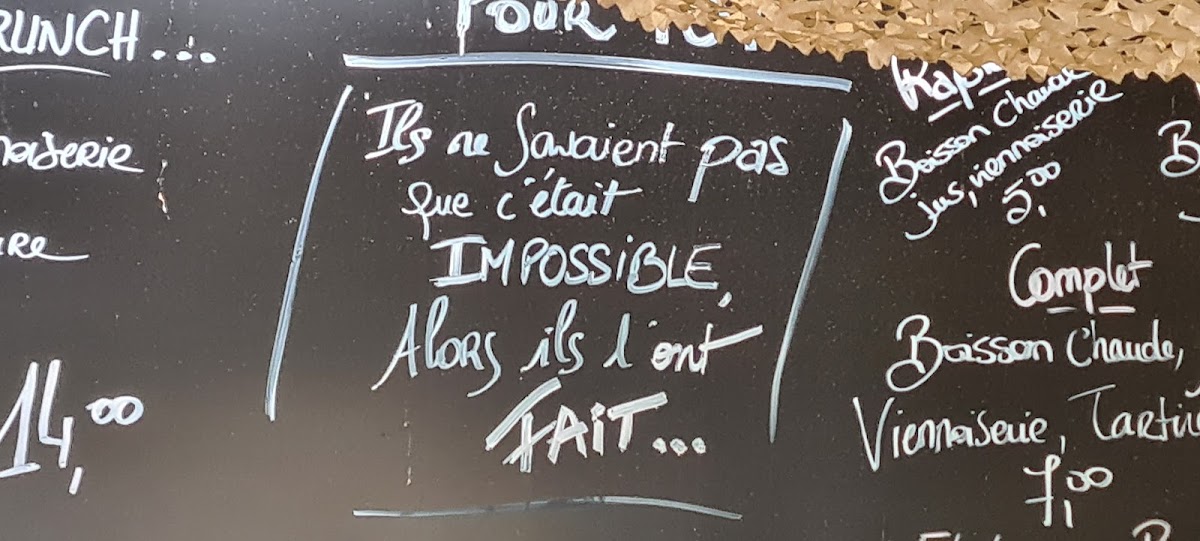 BRUNCH...
14,00
POUR TOI
Ils ne savaient pas
que c'était
IMPOSSIBLE,
Alors ils l'ont
FAIT...
Boisson Chaude
jus, viennoiserie
5,00
Complet
Boisson Chaude,
Viennoiserie,
7,00